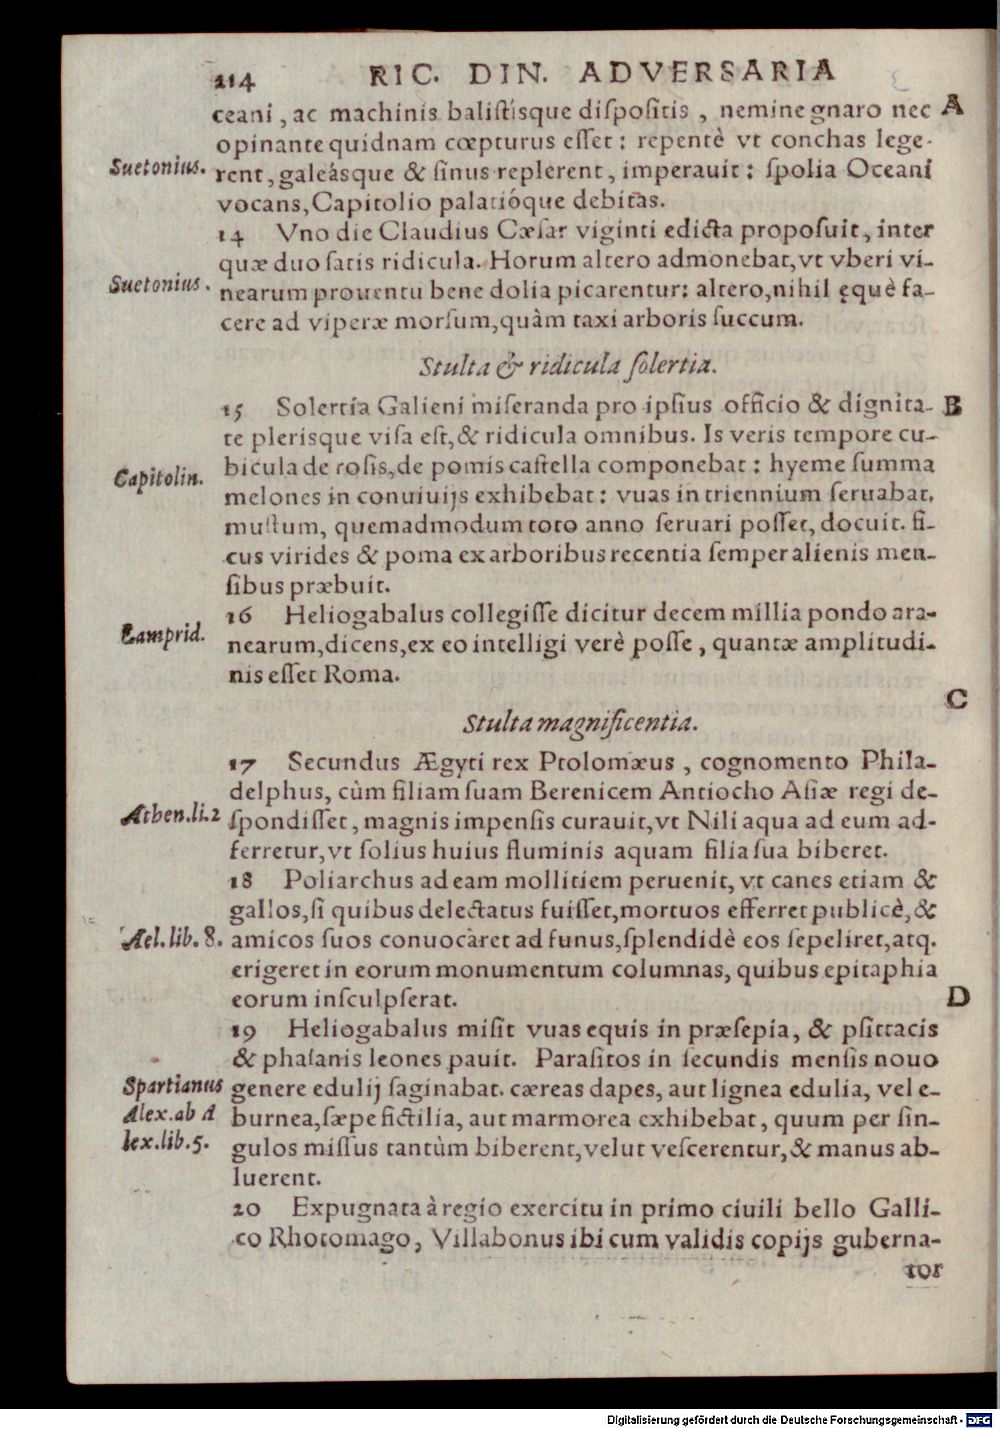 214 RIC. DIN. ADVERSARIA
ceani, ac machinis balistisque dispositis, nemine gnaro nec A
opinante quidnam cœpturus esset: repentè vt conchas lege-
Suetonius. rent, galeásque & sinus replerent, imperauit: spolia Oceani
vocans, Capitolio palatióque debitas.
14 Vno die Claudius Cæsar viginti edicta proposuit, inter
quæ duo satis ridicula. Horum altero admonebat, vt vberi vi-
Suetonius. nearum prouentu bene dolia picarentur: altero, nihil ęquè fa-
cere ad viperæ morsum, quàm taxi arboris succum.
Stulta & ridicula solertia.
15 Solertia Galieni miseranda pro ipsius officio & dignita- B
te plerisque visa est, & ridicula omnibus. Is veris tempore cu-
Capitolin. bicula de rosis, de pomis castella componebat: hyeme summa
melones in conuiuijs exhibebat: vuas in triennium seruabat.
mustum, quemadmodum toto anno seruari posset, docuit. fi-
cus virides & poma ex arboribus recentia semper alienis men-
sibus præbuit.
16 Heliogabalus collegisse dicitur decem millia pondo ara-
Lamprid. nearum, dicens, ex eo intelligi verè posse, quantæ amplitudi-
nis esset Roma.
C
Stulta magnificentia.
17 Secundus Ægyti rex Ptolomæus, cognomento Phila-
delphus, cùm filiam suam Berenicem Antiocho Asiæ regi de-
Athen.li.2 spondisset, magnis impensis curauit, vt Nili aqua ad eum ad-
ferretur, vt solius huius fluminis aquam filia sua biberet.
18 Poliarchus ad eam mollitiem peruenit, vt canes etiam &
gallos, si quibus delectatus fuisset, mortuos efferret publicè, &
Ael.lib.8. amicos suos conuocaret ad funus, splendidè eos sepeliret, atq.
erigeret in eorum monumentum columnas, quibus epitaphia
eorum insculpserat. D
19 Heliogabalus misit vuas equis in præsepia, & psittacis
& phasanis leones pauit. Parasitos in secundis mensis nouo
Spartianus genere edulij saginabat. cæreas dapes, aut lignea edulia, vel e-
Alex.ab A burnea, sæpe fictilia, aut marmorea exhibebat, quum per sin-
lex.lib.5. gulos missus tantùm biberent, velut vescerentur, & manus ab-
luerent.
20 Expugnata à regio exercitu in primo ciuili bello Galli-
co Rhotomago, Villabonus ibi cum validis copijs guberna-
tor
Digitalisierung gefördert durch die Deutsche Forschungsgemeinschaft - DFG